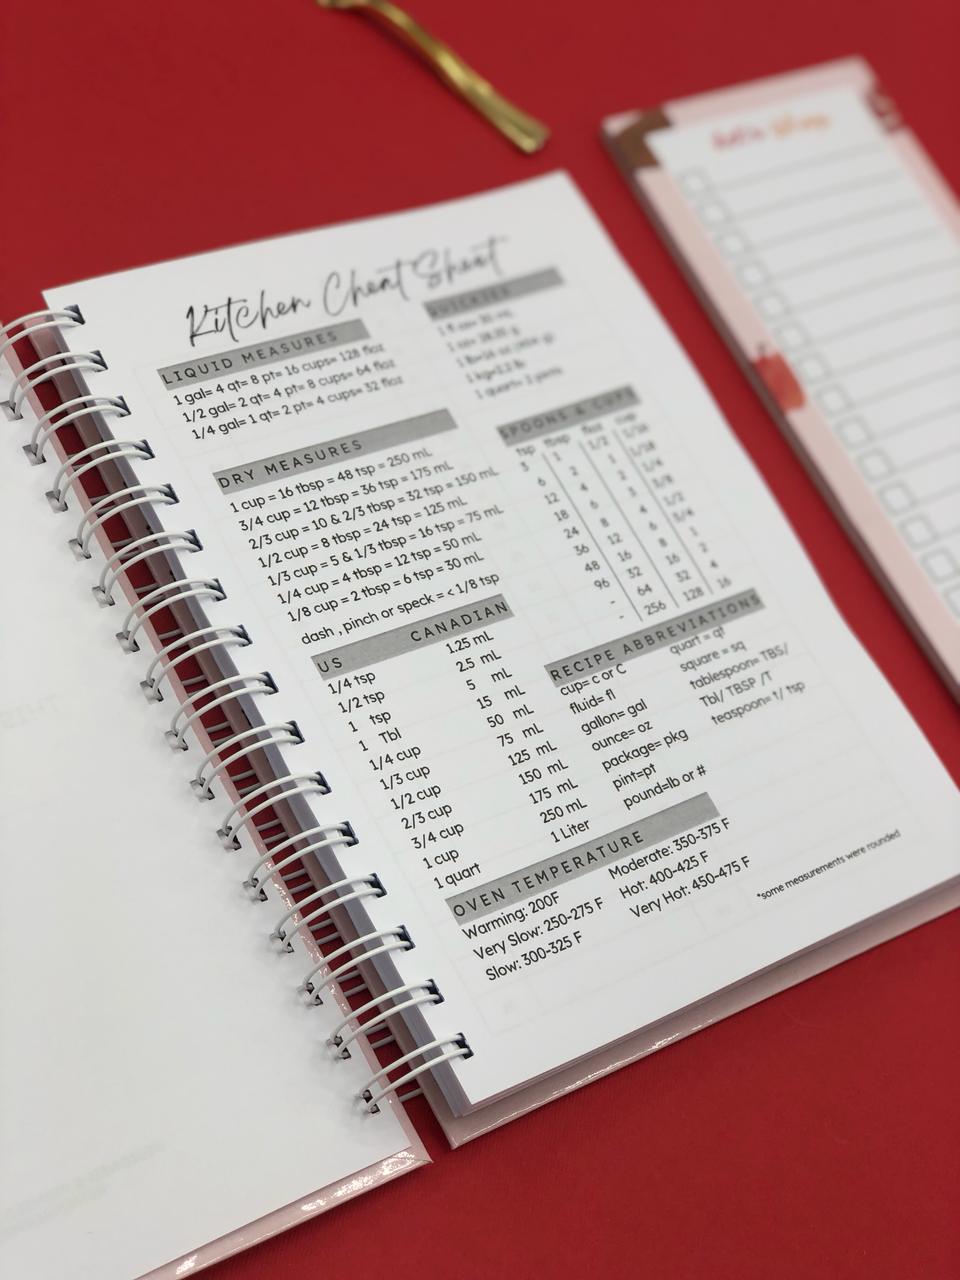 Kitchen Cheat Sheet
LIQUID MEASURES
1 gal= 4 qt= 8 pt= 16 cups= 128 floz
1/2 gal= 2 qt= 4 pt= 8 cups= 64 floz
1/4 gal= 1 qt= 2 pt= 4 cups= 32 floz
DRY MEASURES
1 cup = 16 tbsp = 48 tsp = 250 mL
3/4 cup = 12 tbsp = 36 tsp = 175 mL
2/3 cup = 10 & 2/3 tbsp = 32 tsp = 150 mL
1/2 cup = 8 tbsp = 24 tsp = 125 mL
1/3 cup = 5 & 1/3 tbsp = 16 tsp = 75 mL
1/4 cup = 4 tbsp = 12 tsp = 50 mL
1/8 cup = 2 tbsp = 6 tsp = 30 mL
dash , pinch or speck = < 1/8 tsp
US CANADIAN
1/4 tsp 1.25 mL
1/2 tsp 2.5 mL
1 tsp 5 mL
1 Tbl 15 mL
1/4 cup 50 mL
1/3 cup 75 mL
1/2 cup 125 mL
2/3 cup 150 mL
3/4 cup 175 mL
1 cup 250 mL
1 quart 1 Liter
QUICKIES
1 quart= 2 pints
SPOONS & CUPS
tsp tbsp floz cup
3 1 1/2 1/16
6 2 1
12 4 2 1/4
18 6 3 3/8
24 8 4 1/2
36 12 6 3/4
48 16 8 1
96 32 16 2
- 64 32 4
- 256 128 16
RECIPE ABBREVIATIONS
cup= c or C
fluid= fl
gallon= gal
ounce= oz
package= pkg
pint=pt
pound=lb or #
quart = qt
square = sq
tablespoon= TBS/
Tbl/ TBSP /T
teaspoon= t/ tsp
OVEN TEMPERATURE
Warming: 200F
Very Slow: 250-275 F
Slow: 300-325 F
Moderate: 350-375 F
Hot: 400-425 F
Very Hot: 450-475 F
*some measurements were rounded